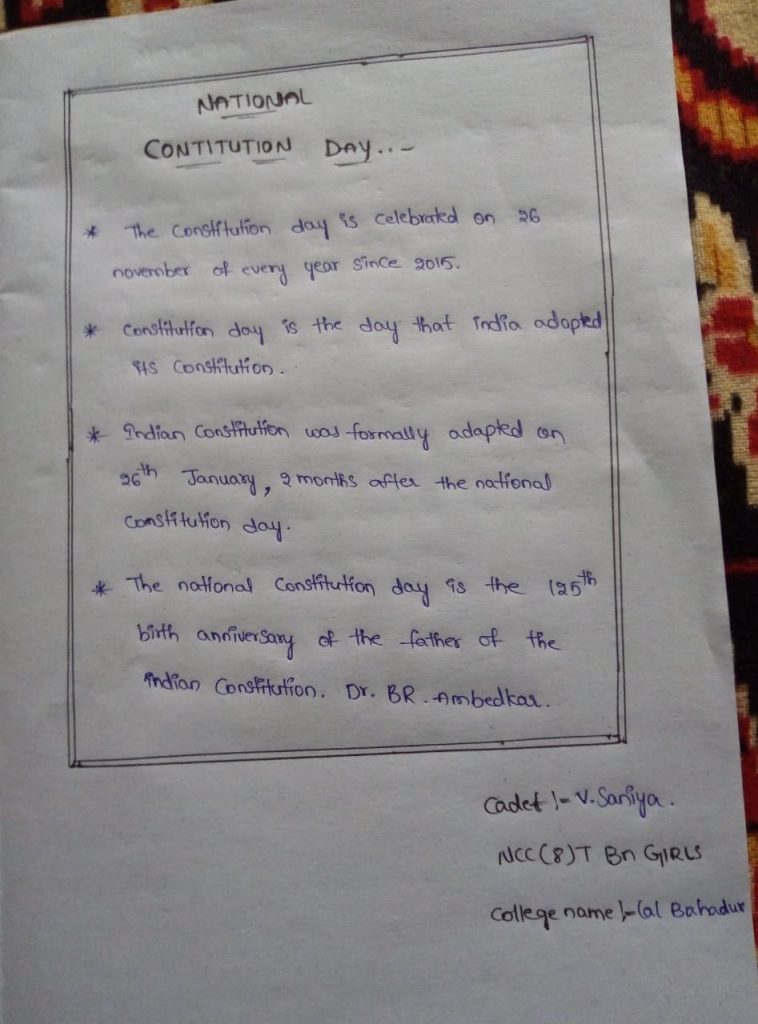 NATIONAL
CONTITUTION DAY..-
* The Constitution day is celebrated on 26
november of every year since 2015.
* Constitution day is the day that india adapted
its Constitution.
* Indian Constitution was formally adapted on
26th January, 2 months after the national
Constitution day.
* The national Constitution day is the 125th
birth anniversary of the father of the
indian Constitution. Dr. BR. Ambedkar.
Cadet :- V. Saniya.
NCC (8)T Bn GIRLS
College name :- Lal Bahadur